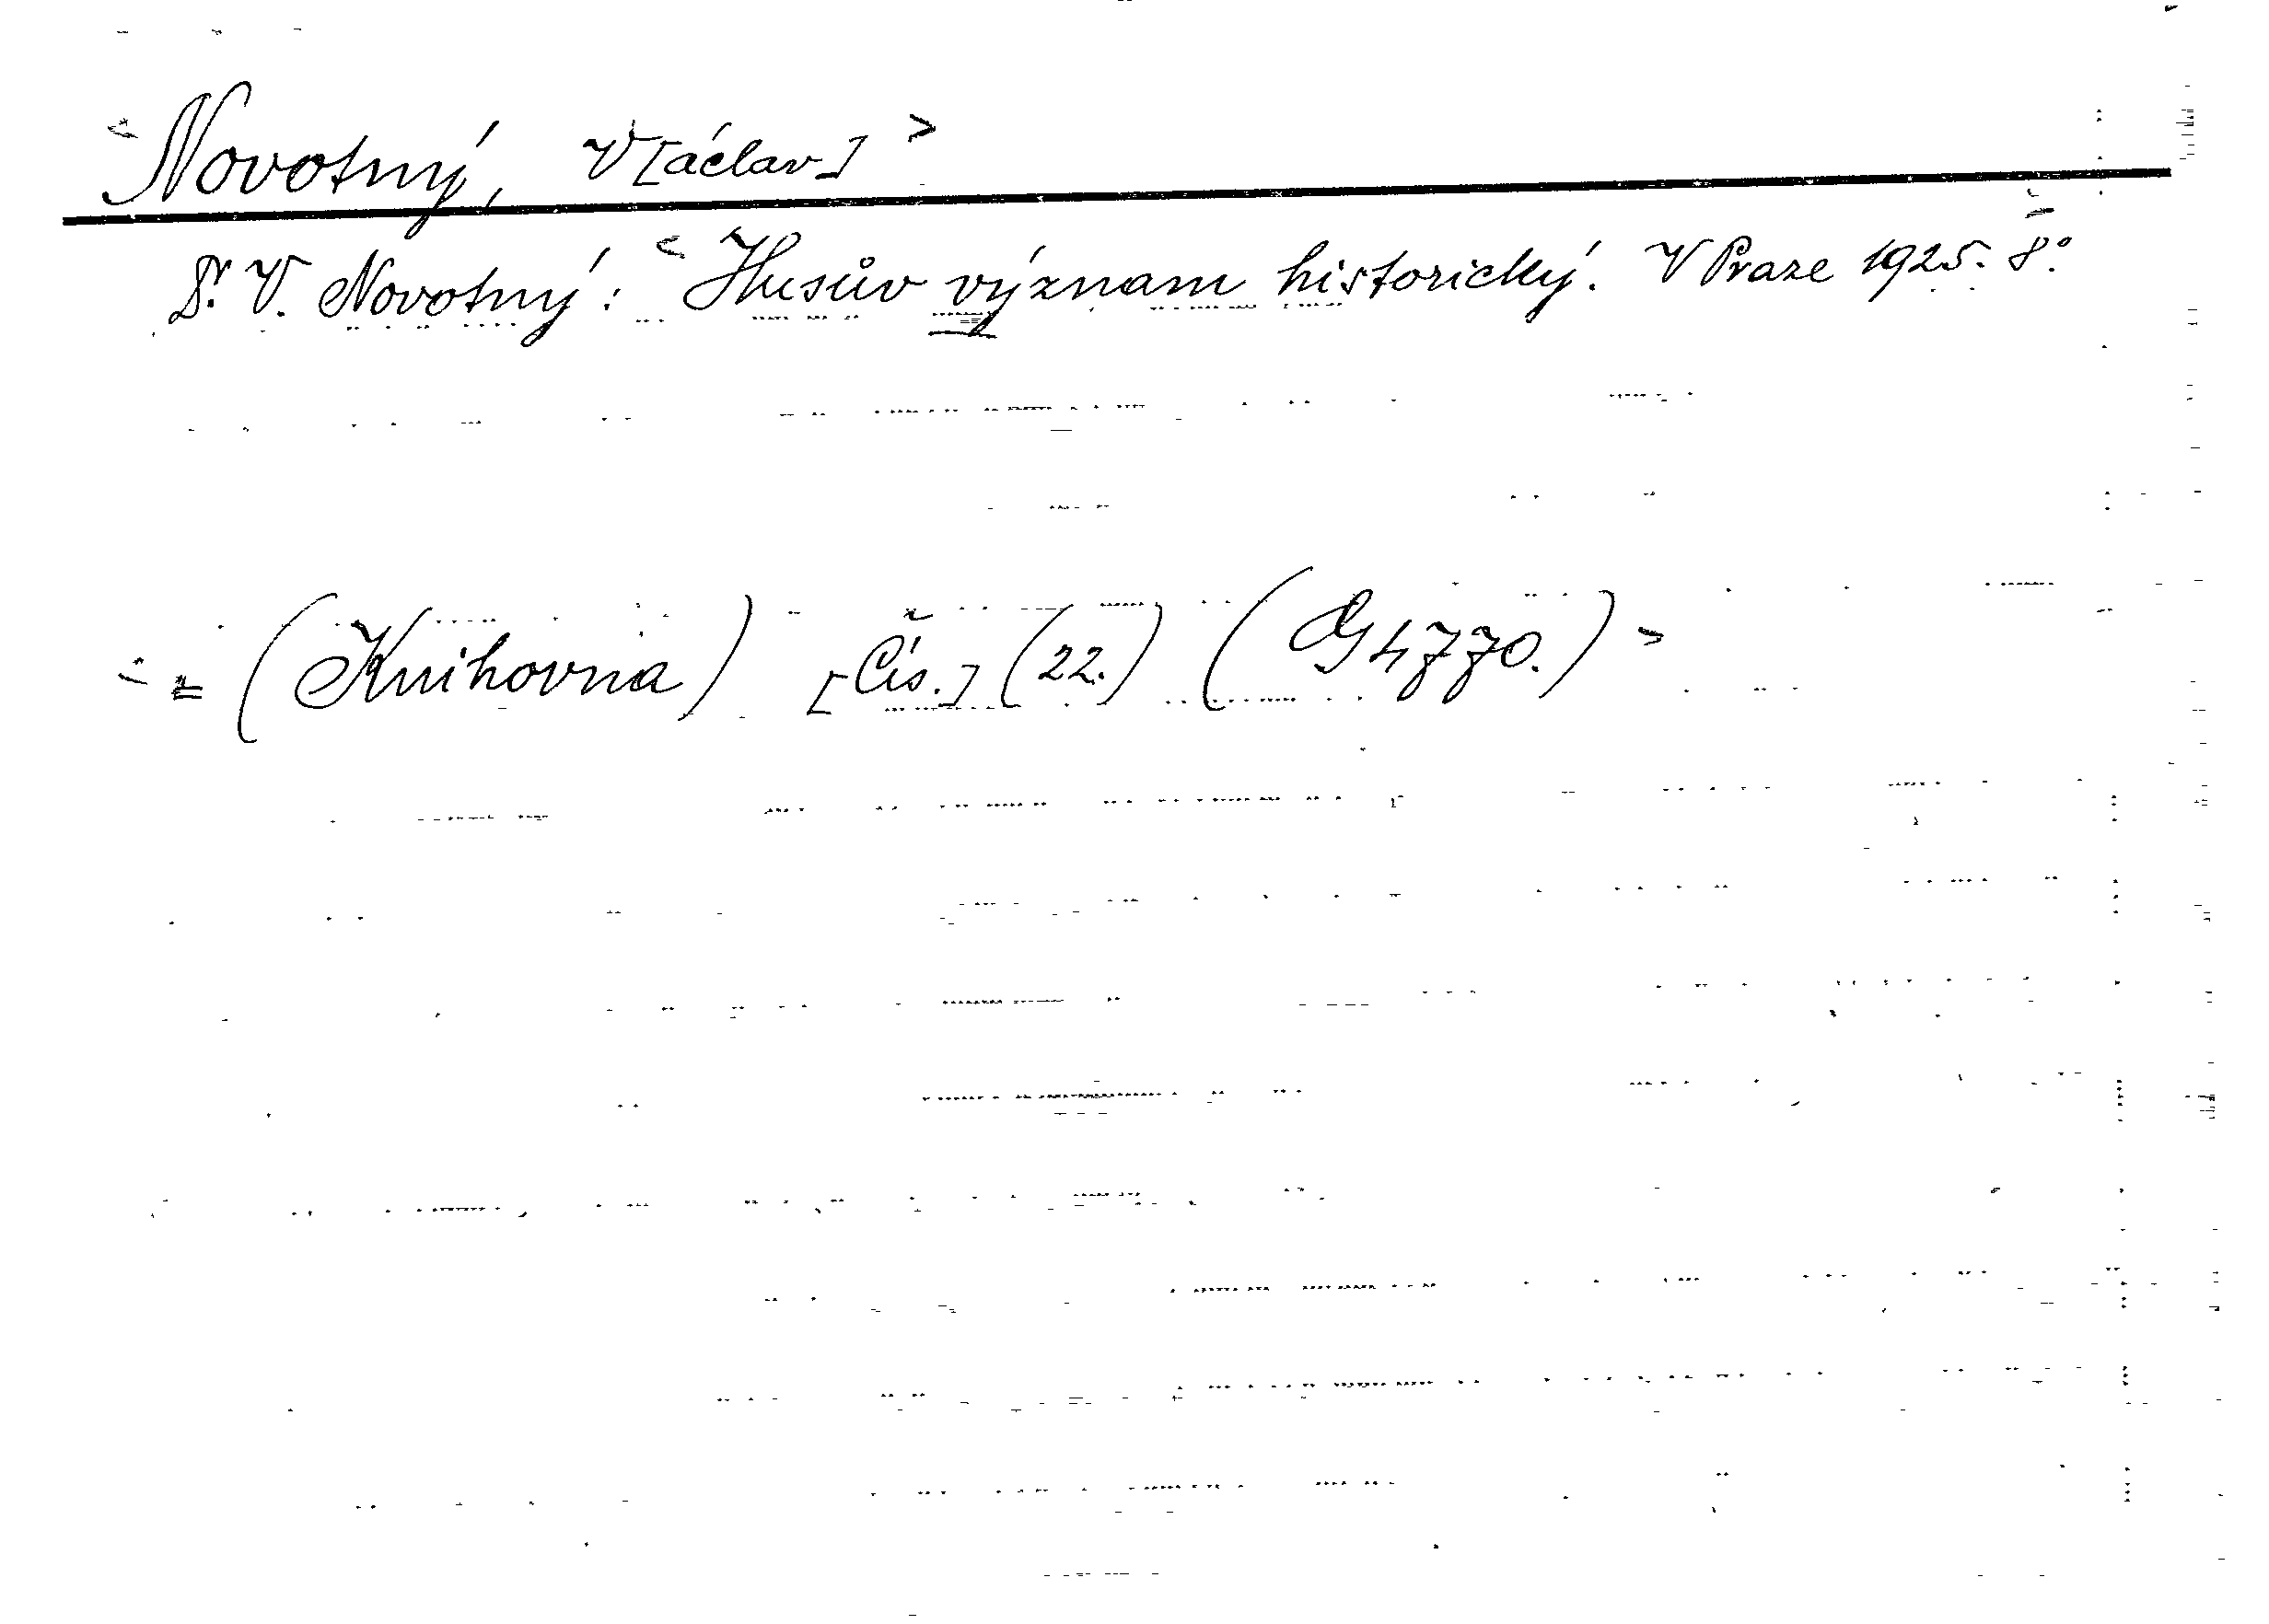 <Novotný, V[áclav]>
Dr. V. Novotný: <Husův význam historický. V Praze 1925. 8°.
<= (Knihovna) [Čís.] (22.) (G 4770.)>